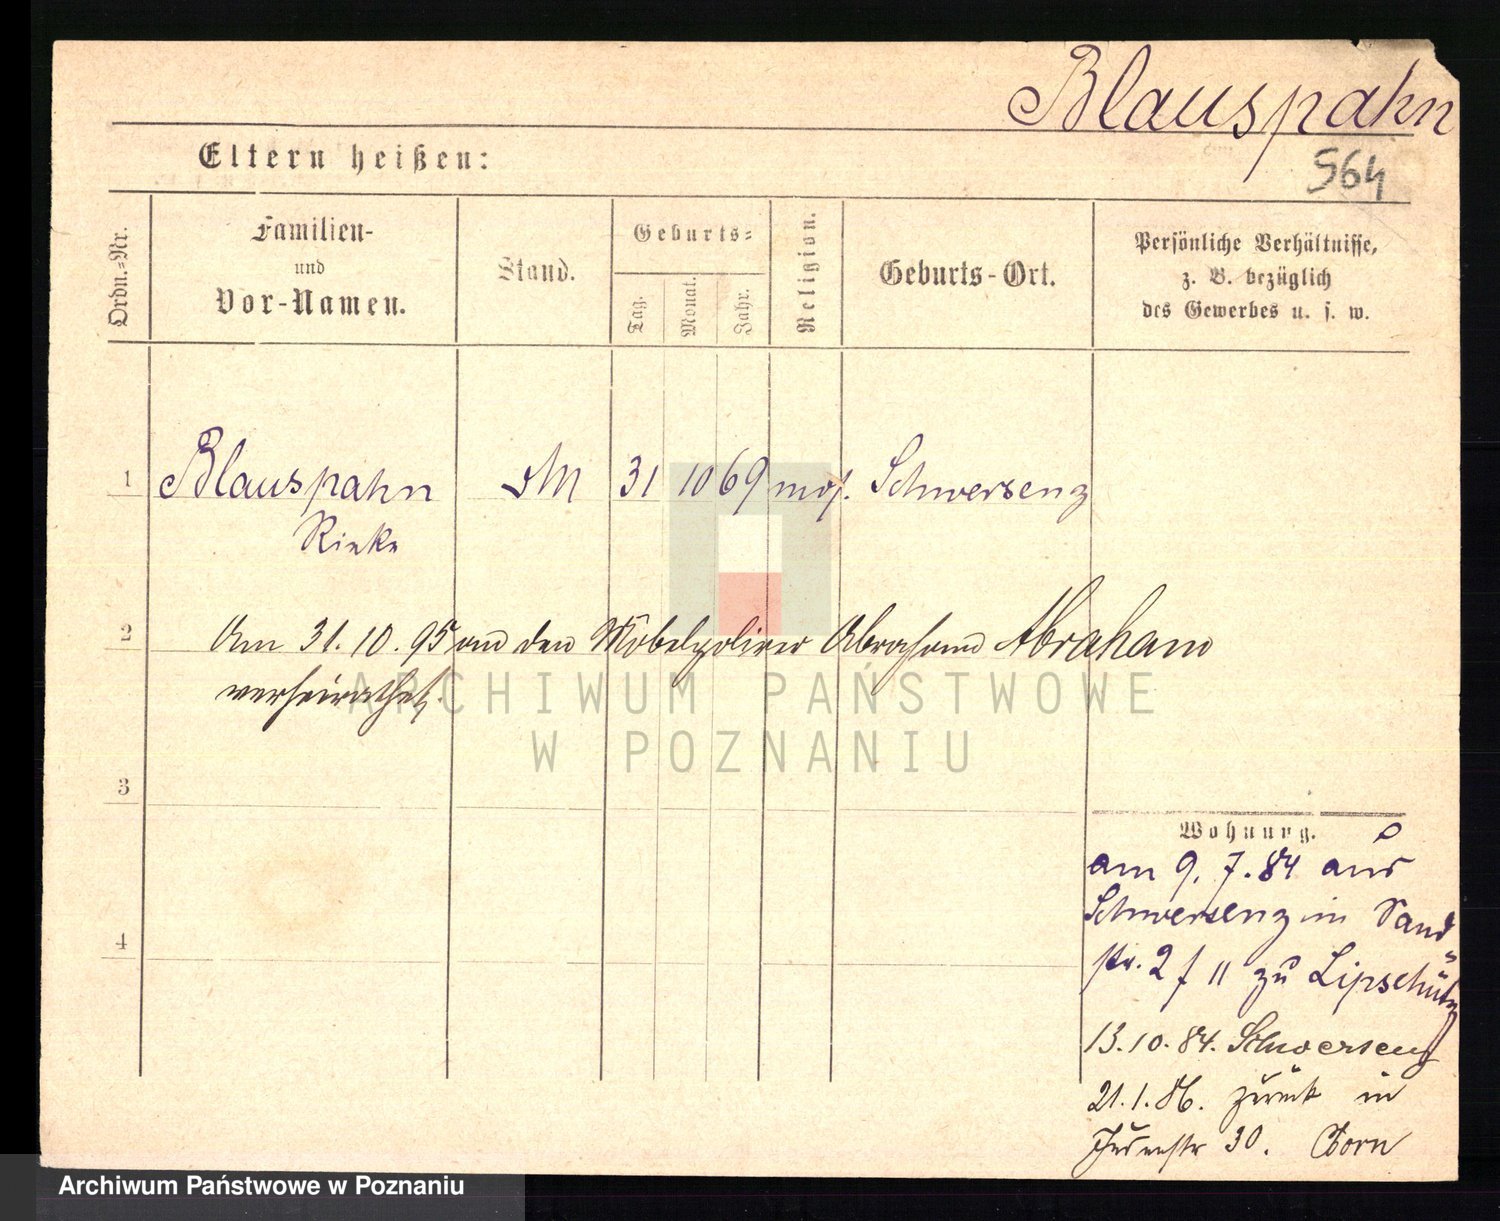 Blauspahn
564
Eltern heißen:
Ordn.-Nr.
Familien-
und
Vor-Namen.
Stand.
Geburts-
Tag.
Monat.
Jahr.
Religion.
Geburts-Ort.
Persönliche Verhältnisse,
z. B. bezüglich
des Gewerbes u. s. w.
1 Blauspahn 31 10 69 mos. Schwersenz
Rieke
2 Am 31.10.95 an den Möbelpolirer Abraham Abraham
verheirathet.
ARCHIWUM PAŃSTWOWE
W POZNANIU
3
Wohnung.
am 9.7.84 aus
Schwersenz in Sand
str. 2 II zu Lipschütz
4
13.10.84. Schwersenz
21.1.86. zurück in
Judenstr 30.
Archiwum Państwowe w Poznaniu